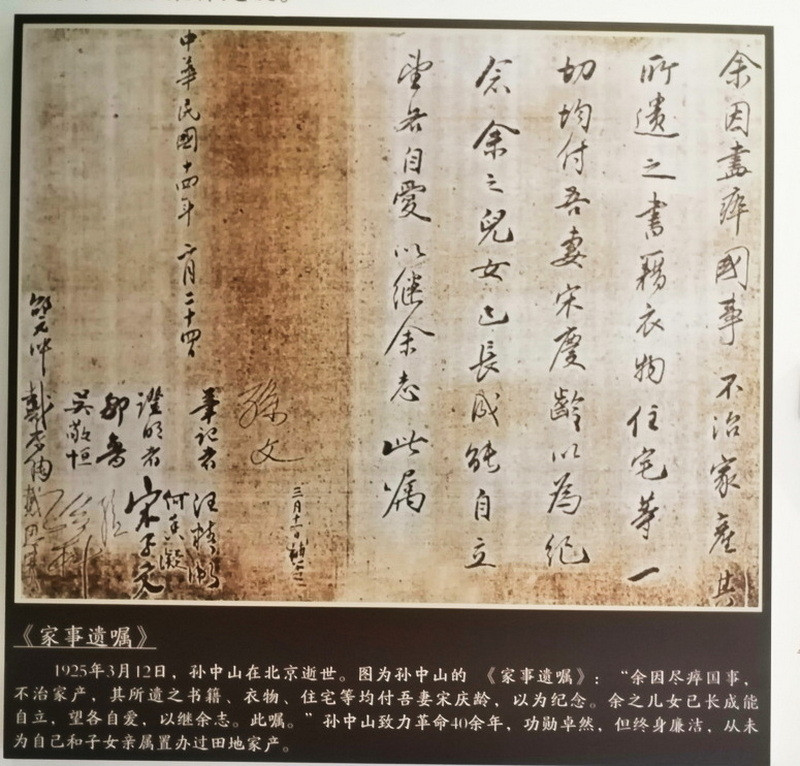 余因盡瘁國事不治家產其
所遺之書籍衣物住宅等一
切均付吾妻宋慶齡以為紀
念余之兒女已長成能自立
望各自愛以继余志此嘱
孫文
三月十一日補簽
中華民國十四年二月二十四日
筆記者 汪精衛
何香凝
證明者 宋子文
孫科
鄒魯
吳敬恒
邵元冲
戴恩賽
《家事遗嘱》
1925年3月12日，孙中山在北京逝世。图为孙中山的 《家事遗嘱》：“余因尽瘁国事，
不治家产，其所遗之书籍、衣物、住宅等均付吾妻宋庆龄，以为纪念。余之儿女已长成能
自立，望各自爱，以继余志。此嘱。”孙中山致力革命40余年，功勋卓然，但终身廉洁，从未
为自己和子女亲属置办过田地家产。